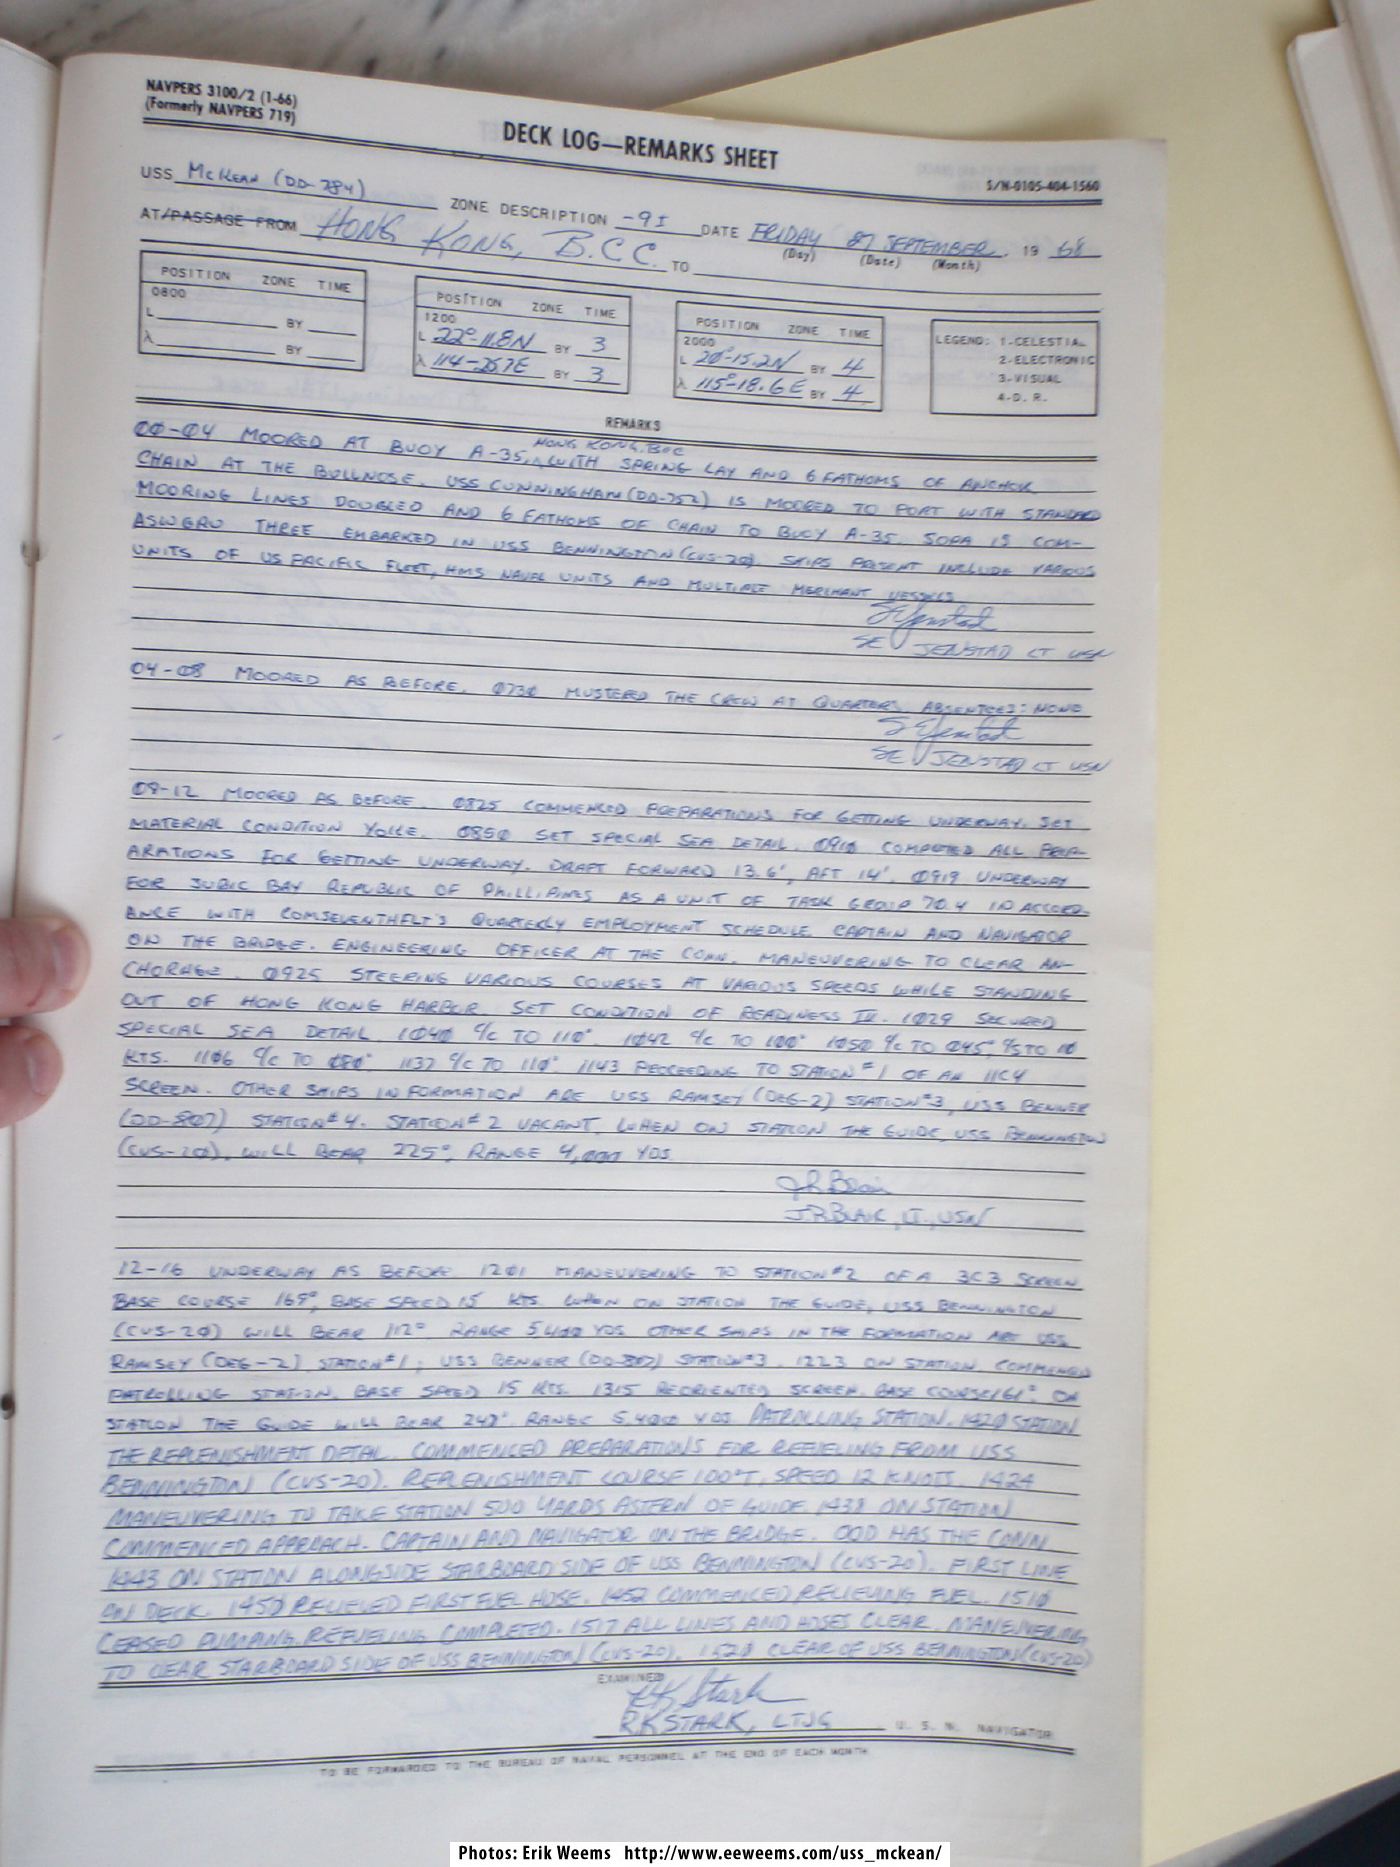 NAVPERS 3100/2 (1-66)
(Formerly NAVPERS 719)
DECK LOG—REMARKS SHEET
S/N-0105-404-1560
USS McKEAN (DD-784) ZONE DESCRIPTION -9I DATE FRIDAY 27 SEPTEMBER, 19 68
(Day) (Date) (Month)
AT/PASSAGE FROM HONG KONG, B.C.C. TO
POSITION ZONE TIME
0800
L BY
λ BY
POSITION ZONE TIME
1200
L 22°-11.8N BY 3
λ 114-25.7E BY 3
POSITION ZONE TIME
2000
L 20°-15.2N BY 4
λ 115°-18.6E BY 4
LEGEND: 1-CELESTIAL
2-ELECTRONIC
3-VISUAL
4-D. R.
REMARKS
00-04 MOORED AT BUOY A-35, HONG KONG, BCC WITH SPRING LAY AND 6 FATHOMS OF ANCHOR
CHAIN AT THE BULLNOSE. USS CUNNINGHAM (DD-752) IS MOORED TO PORT WITH STANDARD
MOORING LINES DOUBLED AND 6 FATHOMS OF CHAIN TO BUOY A-35. SOPA IS COM-
ASWGRU THREE EMBARKED IN USS BENNINGTON (CVS-20). SHIPS PRESENT INCLUDE VARIOUS
UNITS OF US PACIFIC FLEET, HMS NAVAL UNITS AND MULTIPLE MERCHANT VESSELS
SE Jenstad
SE JENSTAD LT USN
04-08 MOORED AS BEFORE. 0730 MUSTERED THE CREW AT QUARTERS. ABSENTEES: NONE
S E Jenstad
SE JENSTAD LT USN
08-12 MOORED AS BEFORE. 0825 COMMENCED PREPARATIONS FOR GETTING UNDERWAY. SET
MATERIAL CONDITION YOKE. 0850 SET SPECIAL SEA DETAIL. 0910 COMPLETED ALL PREP-
ARATIONS FOR GETTING UNDERWAY. DRAFT FORWARD 13.6', AFT 14'. 0919 UNDERWAY
FOR SUBIC BAY REPUBLIC OF PHILLIPINES AS A UNIT OF TASK GROUP 70.4 IN ACCORD-
ANCE WITH COMSEVENTHFLT'S QUARTERLY EMPLOYMENT SCHEDULE. CAPTAIN AND NAVIGATOR
ON THE BRIDGE. ENGINEERING OFFICER AT THE CONN. MANEUVERING TO CLEAR AN-
CHORAGE. 0925 STEERING VARIOUS COURSES AT VARIOUS SPEEDS WHILE STANDING
OUT OF HONG KONG HARBOR. SET CONDITION OF READINESS IV. 1029 SECURED
SPECIAL SEA DETAIL. 1040 C/C TO 110°. 1042 C/C TO 100° 1050 C/C TO 045°, C/S TO 10
KTS. 1106 C/C TO 080°. 1137 C/C TO 110°. 1143 PROCEEDING TO STATION #1 OF AN 11C4
SCREEN. OTHER SHIPS IN FORMATION ARE USS RAMSEY (DEG-2) STATION #3, USS BENNER
(DD-807) STATION #4. STATION #2 VACANT. WHEN ON STATION THE GUIDE, USS BENNINGTON
(CVS-20), WILL BEAR 225°, RANGE 4,000 YDS
J R Blair
J.R. BLAIR, LT., USN
12-16 UNDERWAY AS BEFORE. 1201 MANEUVERING TO STATION #2 OF A 3C3 SCREEN
BASE COURSE 169°, BASE SPEED 15 KTS. WHEN ON STATION THE GUIDE, USS BENNINGTON
(CVS-20) WILL BEAR 112° RANGE 5400 YDS. OTHER SHIPS IN THE FORMATION ARE USS
RAMSEY (DEG-2) STATION #1, USS BENNER (DD-807) STATION #3. 1223 ON STATION. COMMENCED
PATROLLING STATION. BASE SPEED 15 KTS. 1315 REORIENTED SCREEN. BASE COURSE 161°. ON
STATION THE GUIDE WILL BEAR 240°. RANGE 5,400 YDS. PATROLLING STATION. 1420 STATION
THE REPLENISHMENT DETAIL. COMMENCED PREPARATIONS FOR REFUELING FROM USS
BENNINGTON (CVS-20). REPLENISHMENT COURSE 100°T, SPEED 12 KNOTS. 1424
MANEUVERING TO TAKE STATION 500 YARDS ASTERN OF GUIDE. 1438 ON STATION
COMMENCED APPROACH. CAPTAIN AND NAVIGATOR ON THE BRIDGE. OOD HAS THE CONN.
1443 ON STATION ALONGSIDE STARBOARD SIDE OF USS BENNINGTON (CVS-20). FIRST LINE
ON DECK. 1450 RECIEVED FIRST FUEL HOSE. 1452 COMMENCED RECIEVING FUEL. 1510
CEASED PUMPING. REFUELING COMPLETED. 1517 ALL LINES AND HOSES CLEAR. MANEUVERING
TO CLEAR STARBOARD SIDE OF USS BENNINGTON (CVS-20). 1520 CLEAR OF USS BENNINGTON (CVS-20)
EXAMINED
R K Stark
RK STARK, LTJG U. S. N. NAVIGATOR
TO BE FORWARDED TO THE BUREAU OF NAVAL PERSONNEL AT THE END OF EACH MONTH
Photos: Erik Weems http://www.eeweems.com/uss_mckean/